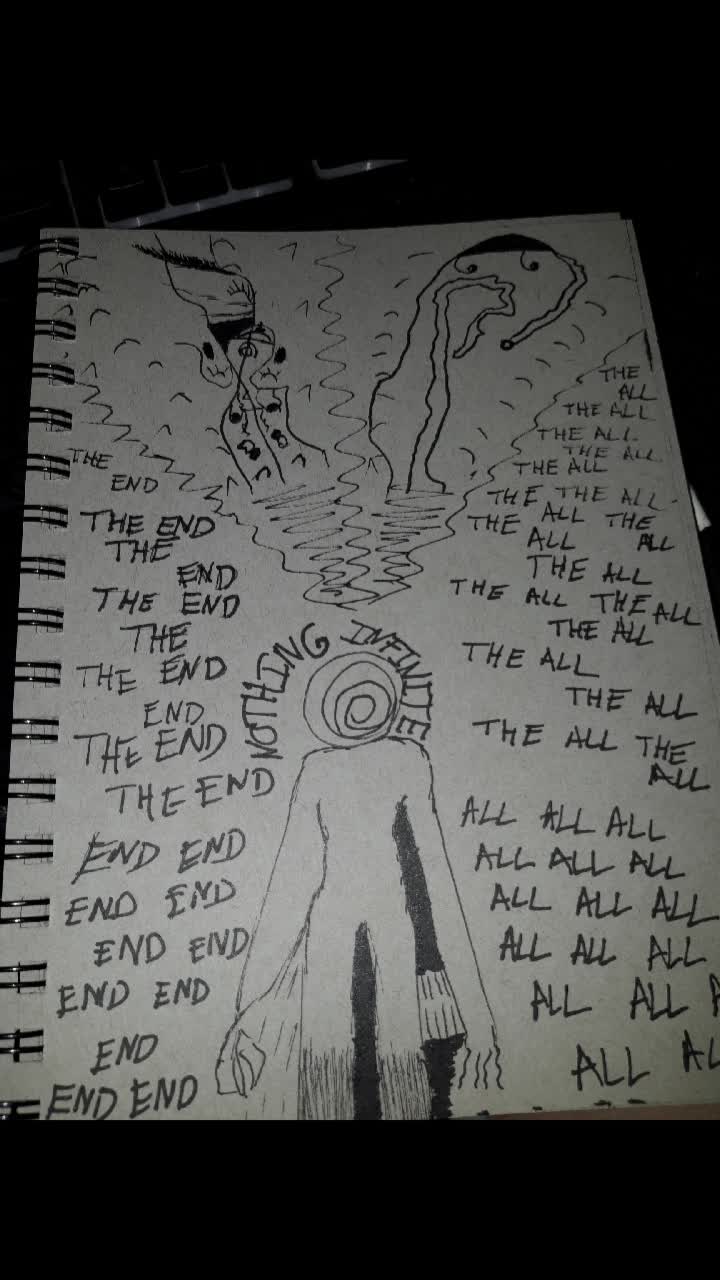 THE
END
THE END
THE
END
THE END
THE
THE END
END
THE END
THE END
END END
END END
END END
END END
END
END END
NOTHING INFINITE
THE
ALL
THE ALL
THE ALL
THE ALL
THE ALL
THE THE ALL
THE ALL THE
ALL ALL
THE ALL
THE ALL THE ALL
THE ALL
THE ALL
THE ALL
THE ALL THE
ALL
ALL ALL ALL
ALL ALL ALL
ALL ALL ALL
ALL ALL ALL
ALL ALL
ALL